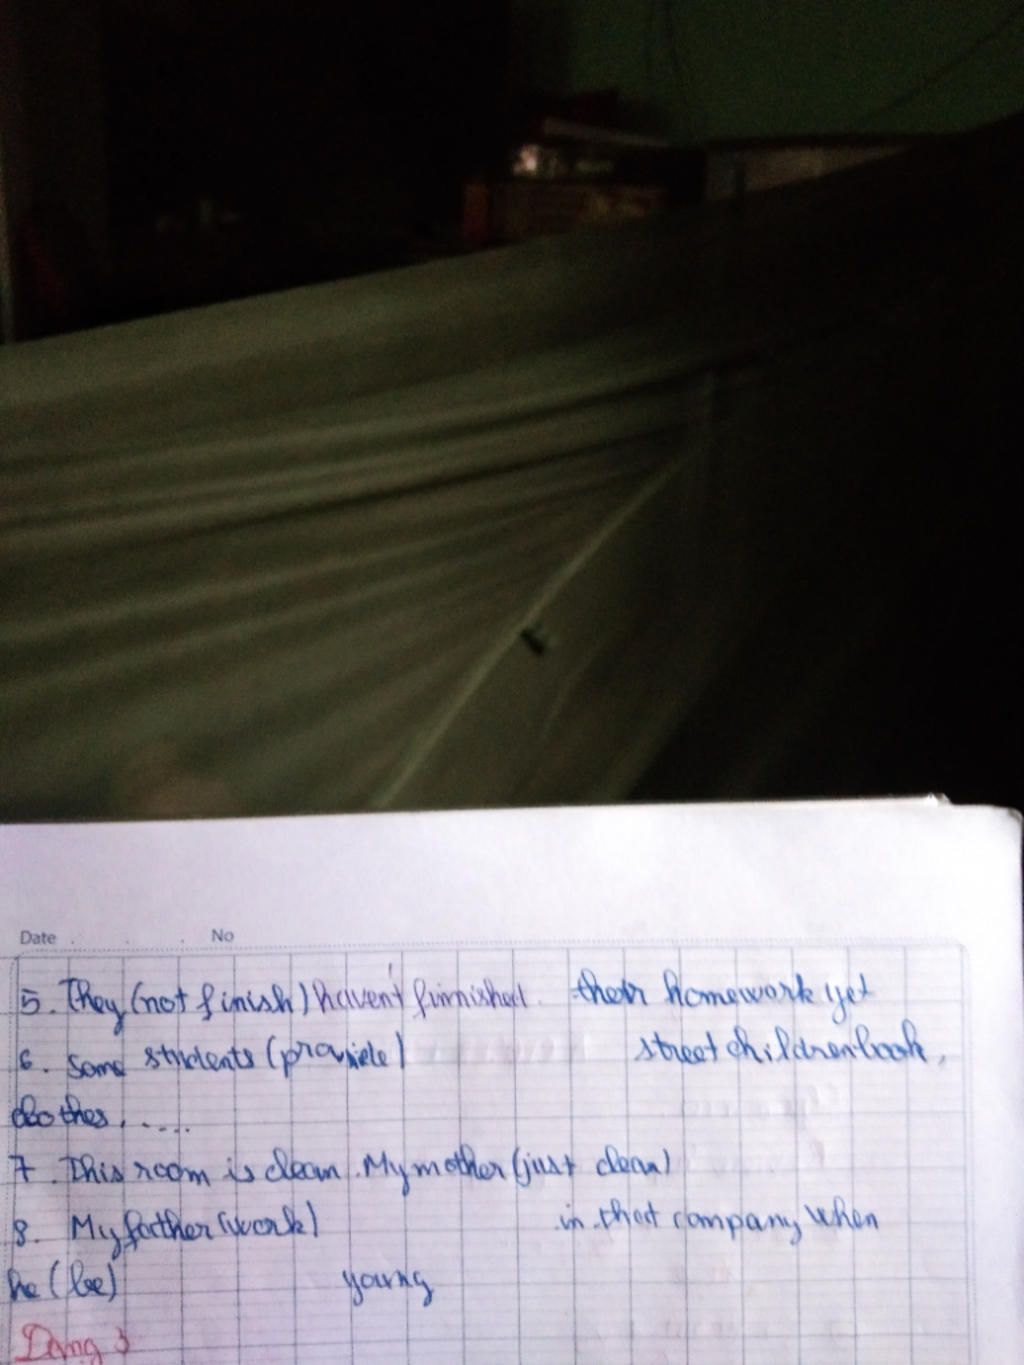 Date No
5. They (not finish) haven't finished. their homework yet
6. Some students (provide) street children book,
clothes, ....
7. This room is clean. My mother (just clean)
8. My father (work) in that company when
he (be) young
Dạng 3